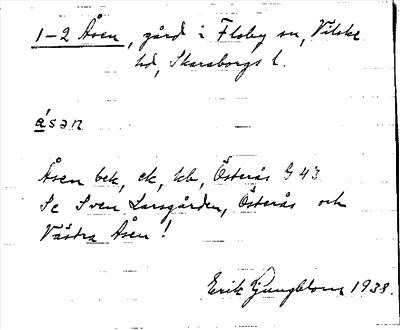 1-2 Åsen, gård i Floby sn, Vilske
hd, Skaraborgs l.
ǻsan
Åsen bek, ek, kb, Österås G 43
Se Sven Larsgården, Österås och
Västra Åsen!
Erik Ljungblom 1938.